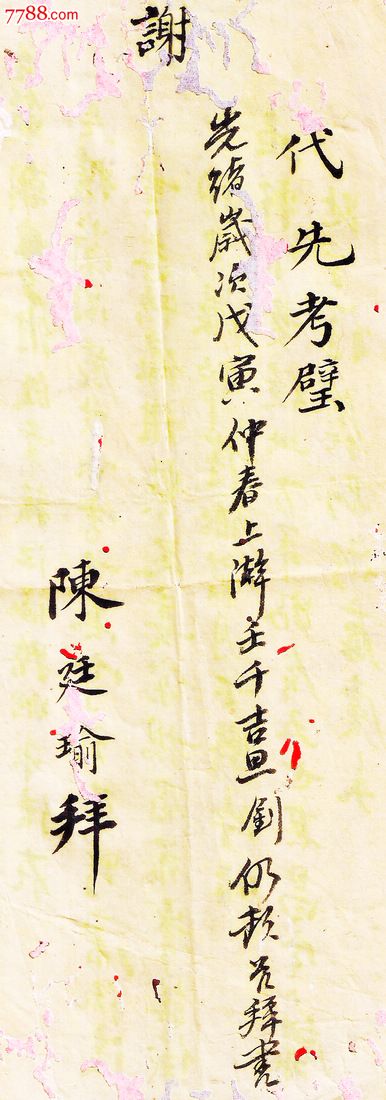 7788.com
代先考璧
謝
光緒歲次戊寅仲春上澣壬午吉旦劉仍拜書
陳廷瑜拜